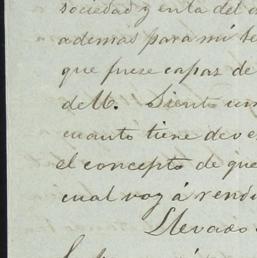 sociedad y en la del
ademas para mi se
que fuese capas de
de V. Siento un
cuanto tiene de e
el concepto de que
cual voy á rendi
Llevado